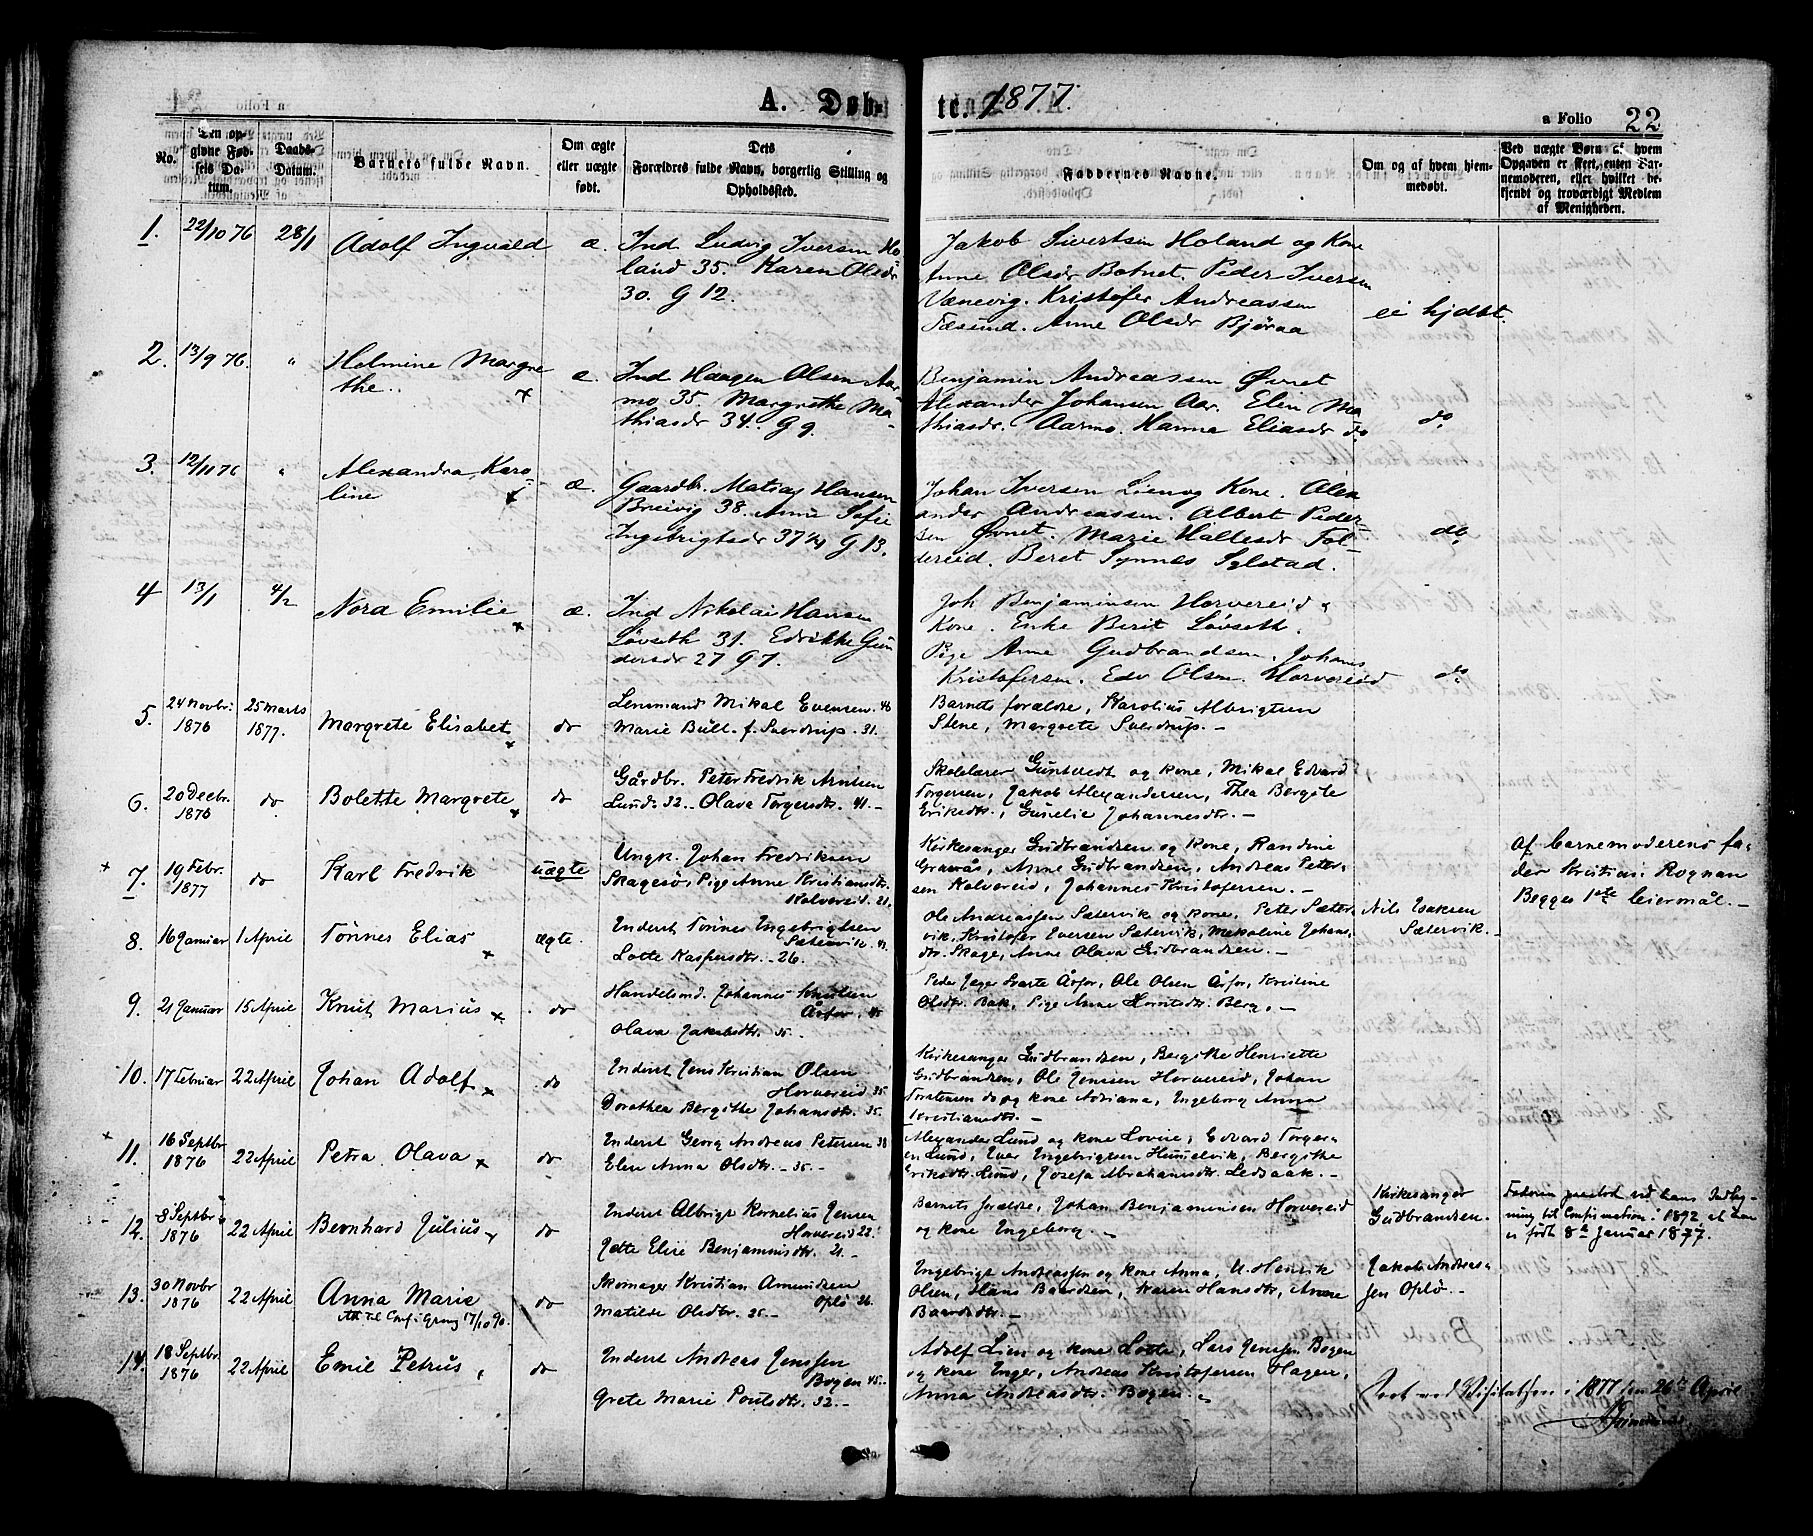 A. Døbte. 1877.
a Folio 22
No.
Den opgivne Fødsels Datum.
Daabs-Datum.
Barnets fulde Navn.
Om ægte eller uægte født.
Dets Forældres fulde Navn, borgerlig Stilling og Opholdssted.
Faddernes Navne.
Om og af hvem hjemmedøbt.
Ved uægte Børn af hvem Opgaven er skeet, enten Barnemoderen, eller hvilket bekjendt og troværdigt Medlem af Menigheden.
1. 22/10 76 28/1 Adolf Ingvald æ. Ind Ludvig Iversen Ho-
land 35. Karen Olsdr
30. G 12.
Jakob Sivertsen Holand og Kone
Anne Olsdr Botnet. Peder Iversen
Vænevig. Kristofer Andreassen
Tæsund. Anne Olsdr Bjøraa
ei hjdbt.
2. 13/9 76. " Helmine Margre
the..
æ. Ind Haagen Olsen Aar-
mo 35 Margrethe Ma-
thiasdr 34. G 9.
Benjamin Andreassen Øvret
Alexander Johansen Aar. Elen Ma
thiasdr. Aarmo. Hanna Eliasdr do
do
3. 12/11 76 " Alexandra Karo-
line
æ. Gaardbr. Matias Hansen
Breivig 38. Anne Sofie
Ingebrigtsdr 37 1/2 G 13.
Johan Iversen Lien og Kone. Alex
ander Andreassen. Albert Peder-
sen Øvret. Marie Haltesdr Fol-
dereid. Beret Synnes Sylstad.
do
4 13/1 4/2 Nora Emilie æ. Ind Nikolai Hansen
Løvseth 31. Edrikke Gun
dersdr 27 G 7.
Joh Benjaminsen Horvereid &
Kone. Enke Berit Løvseth.
Pige Anne Gudbrandsen. Johans
Kristofersen. Edv Olsen. Horvereid
do
5. 24 Novbr. 1876 25 Marts 1877. Margrete Elisabet do Lensmand Mikal Evensen. 46
Marie Bull. f. Sverdrup. 31.
Barnets forældre, Karolius Albrigtsen
Stene, Margrete Sverdrup. -
6. 20 Decbr. 1876 do Bolette Margrete do Gårdbr. Peter Fredrik Arntsen
Lund. 32. Olava Torgersdtr. 41. -
Skolelærer Guntvedt og kone, Mikal Edvard
Torgersen, Jakob Alexandersen, Thea Bergite
Eriksdtr., Gunelie Johannesdtr. -
7. 19 Febr. 1877 do Karl Fredrik uægte Ungk. Johan Fredriksen
Skagesø, Pige Anne Kristiansdtr.
Kolvereid. 21.
Kirkesanger Gudbrandsen og kone, Randine
Gravås, Anne Gudbrandsen, Andreas Peter-
sen Kolvereid, Johannes Kristofersen. -
Af barnemoderens fa-
der Kristian Rognan
Begges 1ste leiermål. -
8. 16 Januar 1 April Tönnes Elias ægte. Inderst Tönnes Ingebrigtsen
Sætervik. 41.
Lotte Kaspersdtr. - 26.
Ole Andreassen Sætervik og kone, Peter Sæter-
vik, Kristofer Iversen Sætervik, Mekaline Johans-
dtr. Skage, Anne Olava Gudbrandsen. -
Nils Isaksen
Sætervik. -
9. 21 Januar 15 April Knut Marius do Handelsmd. Johannes Knutsen
Årfor. 45
Olava Jakobsdtr. 35.
Peder Jæger Svarte Årfor, Ole Olsen Årfor, Kristine
Olsdtr. Bak, Pige Anne Horntsdtr. Berg. -
10. 17 Februar 22 April Johan Adolf do Inderst Jens Kristian Olsen
Horvereid 35
Dorothea Bergithe Johansdtr. 35.
Kirkesanger Gudbrandsen, Bergithe Henriette
Gudbrandsen, Ole Jenssen Horvereid, Johan
Torstensen do og kone Adriana, Ingeborg Anna
Kristiansdtr. -
11. 16 Septbr 1876 22 April Petra Olava do Inderst Georg Andreas Petersen 38
Elen Anna Olsdtr. - 35. -
Alexander Lund og kone Lovise, Edvard Torger-
sen Lund, Iver Ingebrigtsen Hummelvik, Bergithe
Eriksdtr. Lund, Josefa Abrahamsdtr. Ledsaak. -
12. 8 Septbr 1876 22 April Bernhard Julius do Inderst Albrigt Kornelius Jensen
Horvereid 22.
Jette Elise Benjaminsdtr. 21. -
Barnets forældre, Johan Benjaminsen Horvereid
og kone Ingeborg. -
Kirkesanger
Gudbrandsen.
Faderen paastod ved hans Indteg-
ning til Confirmation i 1892 at han
er født 8de Januar 1877.
13. 30 Novbr 1876 22 April Anna Marie
Att til Conf. i Grong 17/10 90.
do Skomager Kristian Amundsen
Oplø 26.
Matilde Olsdtr. 25. -
Ingebrigt Andreassen og kone Anna, U. Henrik
Olsen, Hans Baardsen, Karen Hansdtr., Anne
Baardsdtr. -
Jakob Andreas-
sen Oplø. -
14. 18 Septbr. 1876 22 April Emil Petrus do Inderst Andreas Jenssen
Bogen 45. -
Grete Marie Poulsdtr. 32. -
Adolf Lien og kone Lotte, Lars Jenssen Bogen
og kone Inger, Andreas Kristofersen Hagen,
Anna Andreasdtr. Bogen. -
Seet ved Visitatsen i 1877 den 26de April